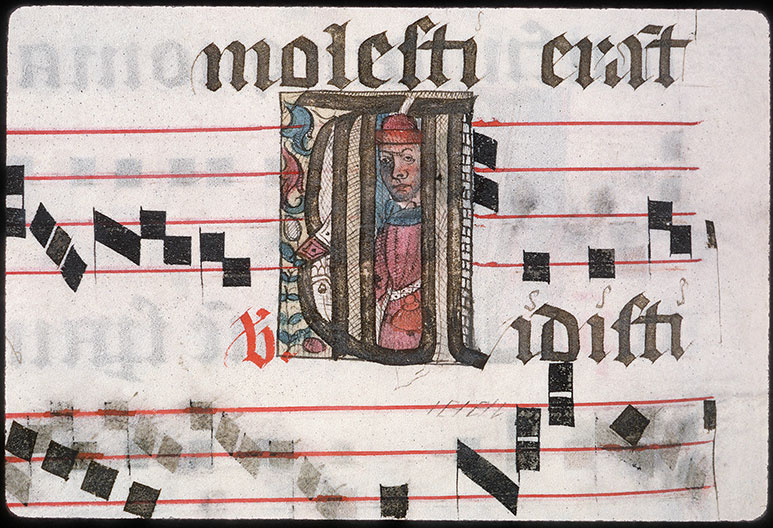 molesti erāt
℣. Vidisti